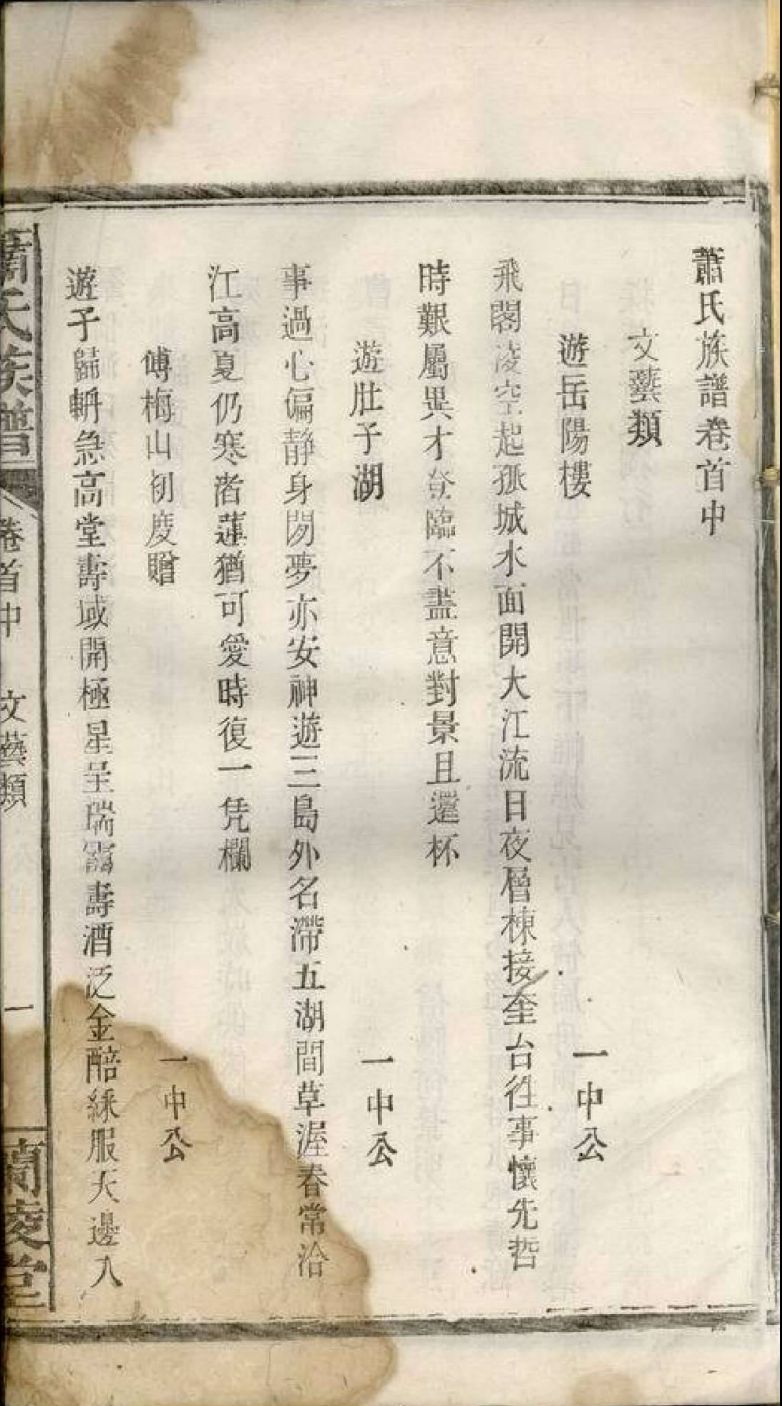 蕭氏族譜卷首中
文藝類
遊岳陽樓 一中公
飛閣淩空起孤城水面開大江流日夜層棟接奎台徃事懷先哲
時艱屬異才登臨不盡意對景且還杯
遊肚子湖 一中公
事過心偏静身閒夢亦安神遊三島外名滯五湖間草渥春常洽
江高夏仍寒渚蓮猶可愛時復一凭欄
傅梅山初度贈 一中公
遊子歸輈急高堂壽域開極星呈瑞靄壽酒泛金醅綵服天邊入
蕭氏族譜 卷首中 文藝類 一 蘭陵堂